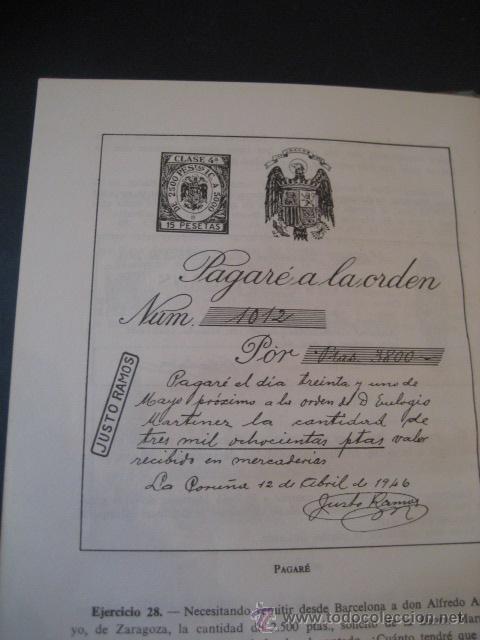 CLASE 4ª
15 PESETAS
Pagaré a la orden
Núm. 1012
Pór Ptas. 3800-
JUSTO RAMOS
Pagaré el dia treinta y uno de
Mayo próximo a la orden de D Eulogio
Martinez la cantidad de
tres mil ochocientas ptas valor
recibido en mercaderias
La Coruña 12 de Abril de 1946
Justo Ramos
PAGARÉ
Ejercicio 28. — Necesitando remitir desde Barcelona a don Alfredo A
yo, de Zaragoza, la cantidad de 500 ptas., solicito de
todocoleccion.net